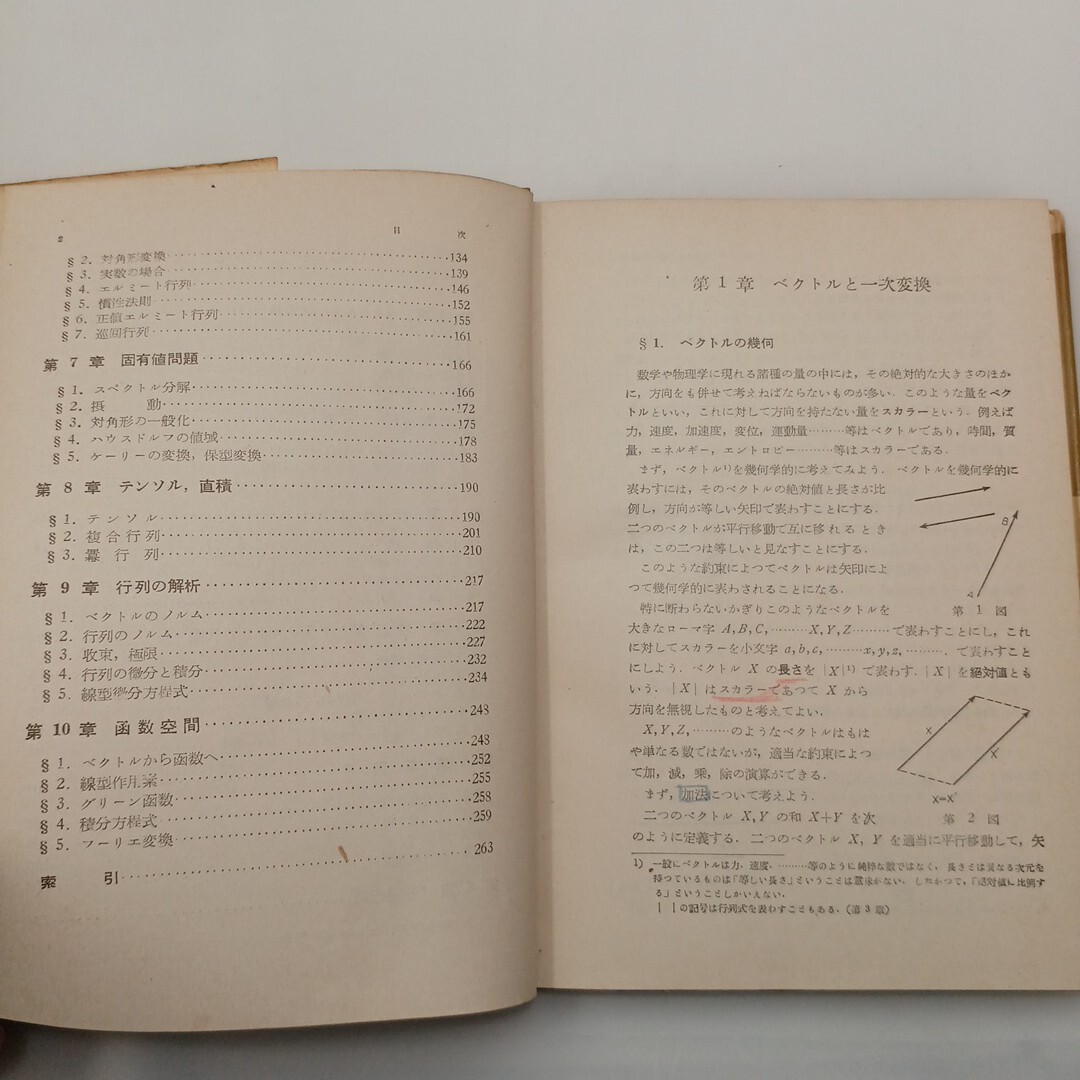 2 目 次
§ 2. 対角形変換 134
§ 3. 実数の場合 139
§ 4. エルミート行列 146
§ 5. 慣性法則 152
§ 6. 正値エルミート行列 155
§ 7. 巡回行列 161
第 7 章 固有値問題 166
§ 1. スペクトル分解 166
§ 2. 摂 動 172
§ 3. 対角形の一般化 175
§ 4. ハウスドルフの値域 178
§ 5. ケーリーの変換, 保型変換 183
第 8 章 テンソル, 直積 190
§ 1. テ ン ソ ル 190
§ 2. 複合行列 201
§ 3. 羃 行 列 210
第 9 章 行列の解析 217
§ 1. ベクトルのノルム 217
§ 2. 行列のノルム 222
§ 3. 収束, 極限 227
§ 4. 行列の微分と積分 232
§ 5. 線型微分方程式 234
第 10 章 函数空間 248
§ 1. ベクトルから函数へ 248
§ 2. 線型作用素 252
§ 3. グリーン函数 255
§ 4. 積分方程式 258
§ 5. フーリエ変換 259
索 引 263
第 1 章 ベクトルと一次変換
§ 1. ベクトルの幾何
数学や物理学に現れる諸種の量の中には, その絶対的な大きさのほか
に, 方向をも併せて考えねばならないものが多い. このような量をベク
トルといい, これに対して方向を持たない量をスカラーという. 例えば
力, 速度, 加速度, 変位, 運動量………等はベクトルであり, 時間, 質
量, エネルギー, エントロピー………等はスカラーである.
まず, ベクトル1)を幾何学的に考えてみよう. ベクトルを幾何学的に
表わすには, そのベクトルの絶対値と長さが比
例し, 方向が等しい矢印で表わすことにする.
二つのベクトルが平行移動で互に移れるとき
は, この二つは等しいと見なすことにする.
このような約束によつてベクトルは矢印によ
つて幾何学的に表わされることになる.
B
A
第 1 図
特に断わらないかぎりこのようなベクトルを
大きなローマ字 A, B, C, ………X, Y, Z………で表わすことにし, これ
に対してスカラーを小文字 a, b, c, ………x, y, z, ………. で表わすこと
にしよう. ベクトル X の長さを |X|1) で表わす. |X| を絶対値とも
いう. |X| はスカラーであつて X から
方向を無視したものと考えてよい.
X, Y, Z, ………のようなベクトルはもは
や単なる数ではないが, 適当な約束によつ
て加, 減, 乗, 除の演算ができる.
まず, 加法について考えよう.
X
X'
X=X'
第 2 図
二つのベクトル X, Y の和 X+Y を次
のように定義する. 二つのベクトル X, Y を適当に平行移動して, 矢
1) 一般にベクトルは力, 速度, ………等のように純粋な数ではなく, 長さとは異なる次元を
持つているものは「等しい長さ」ということは意味がない. したがつて, 「絶対値に比例す
る」ということしかいえない.
| | の記号は行列式を表わすこともある. (第 3 章)